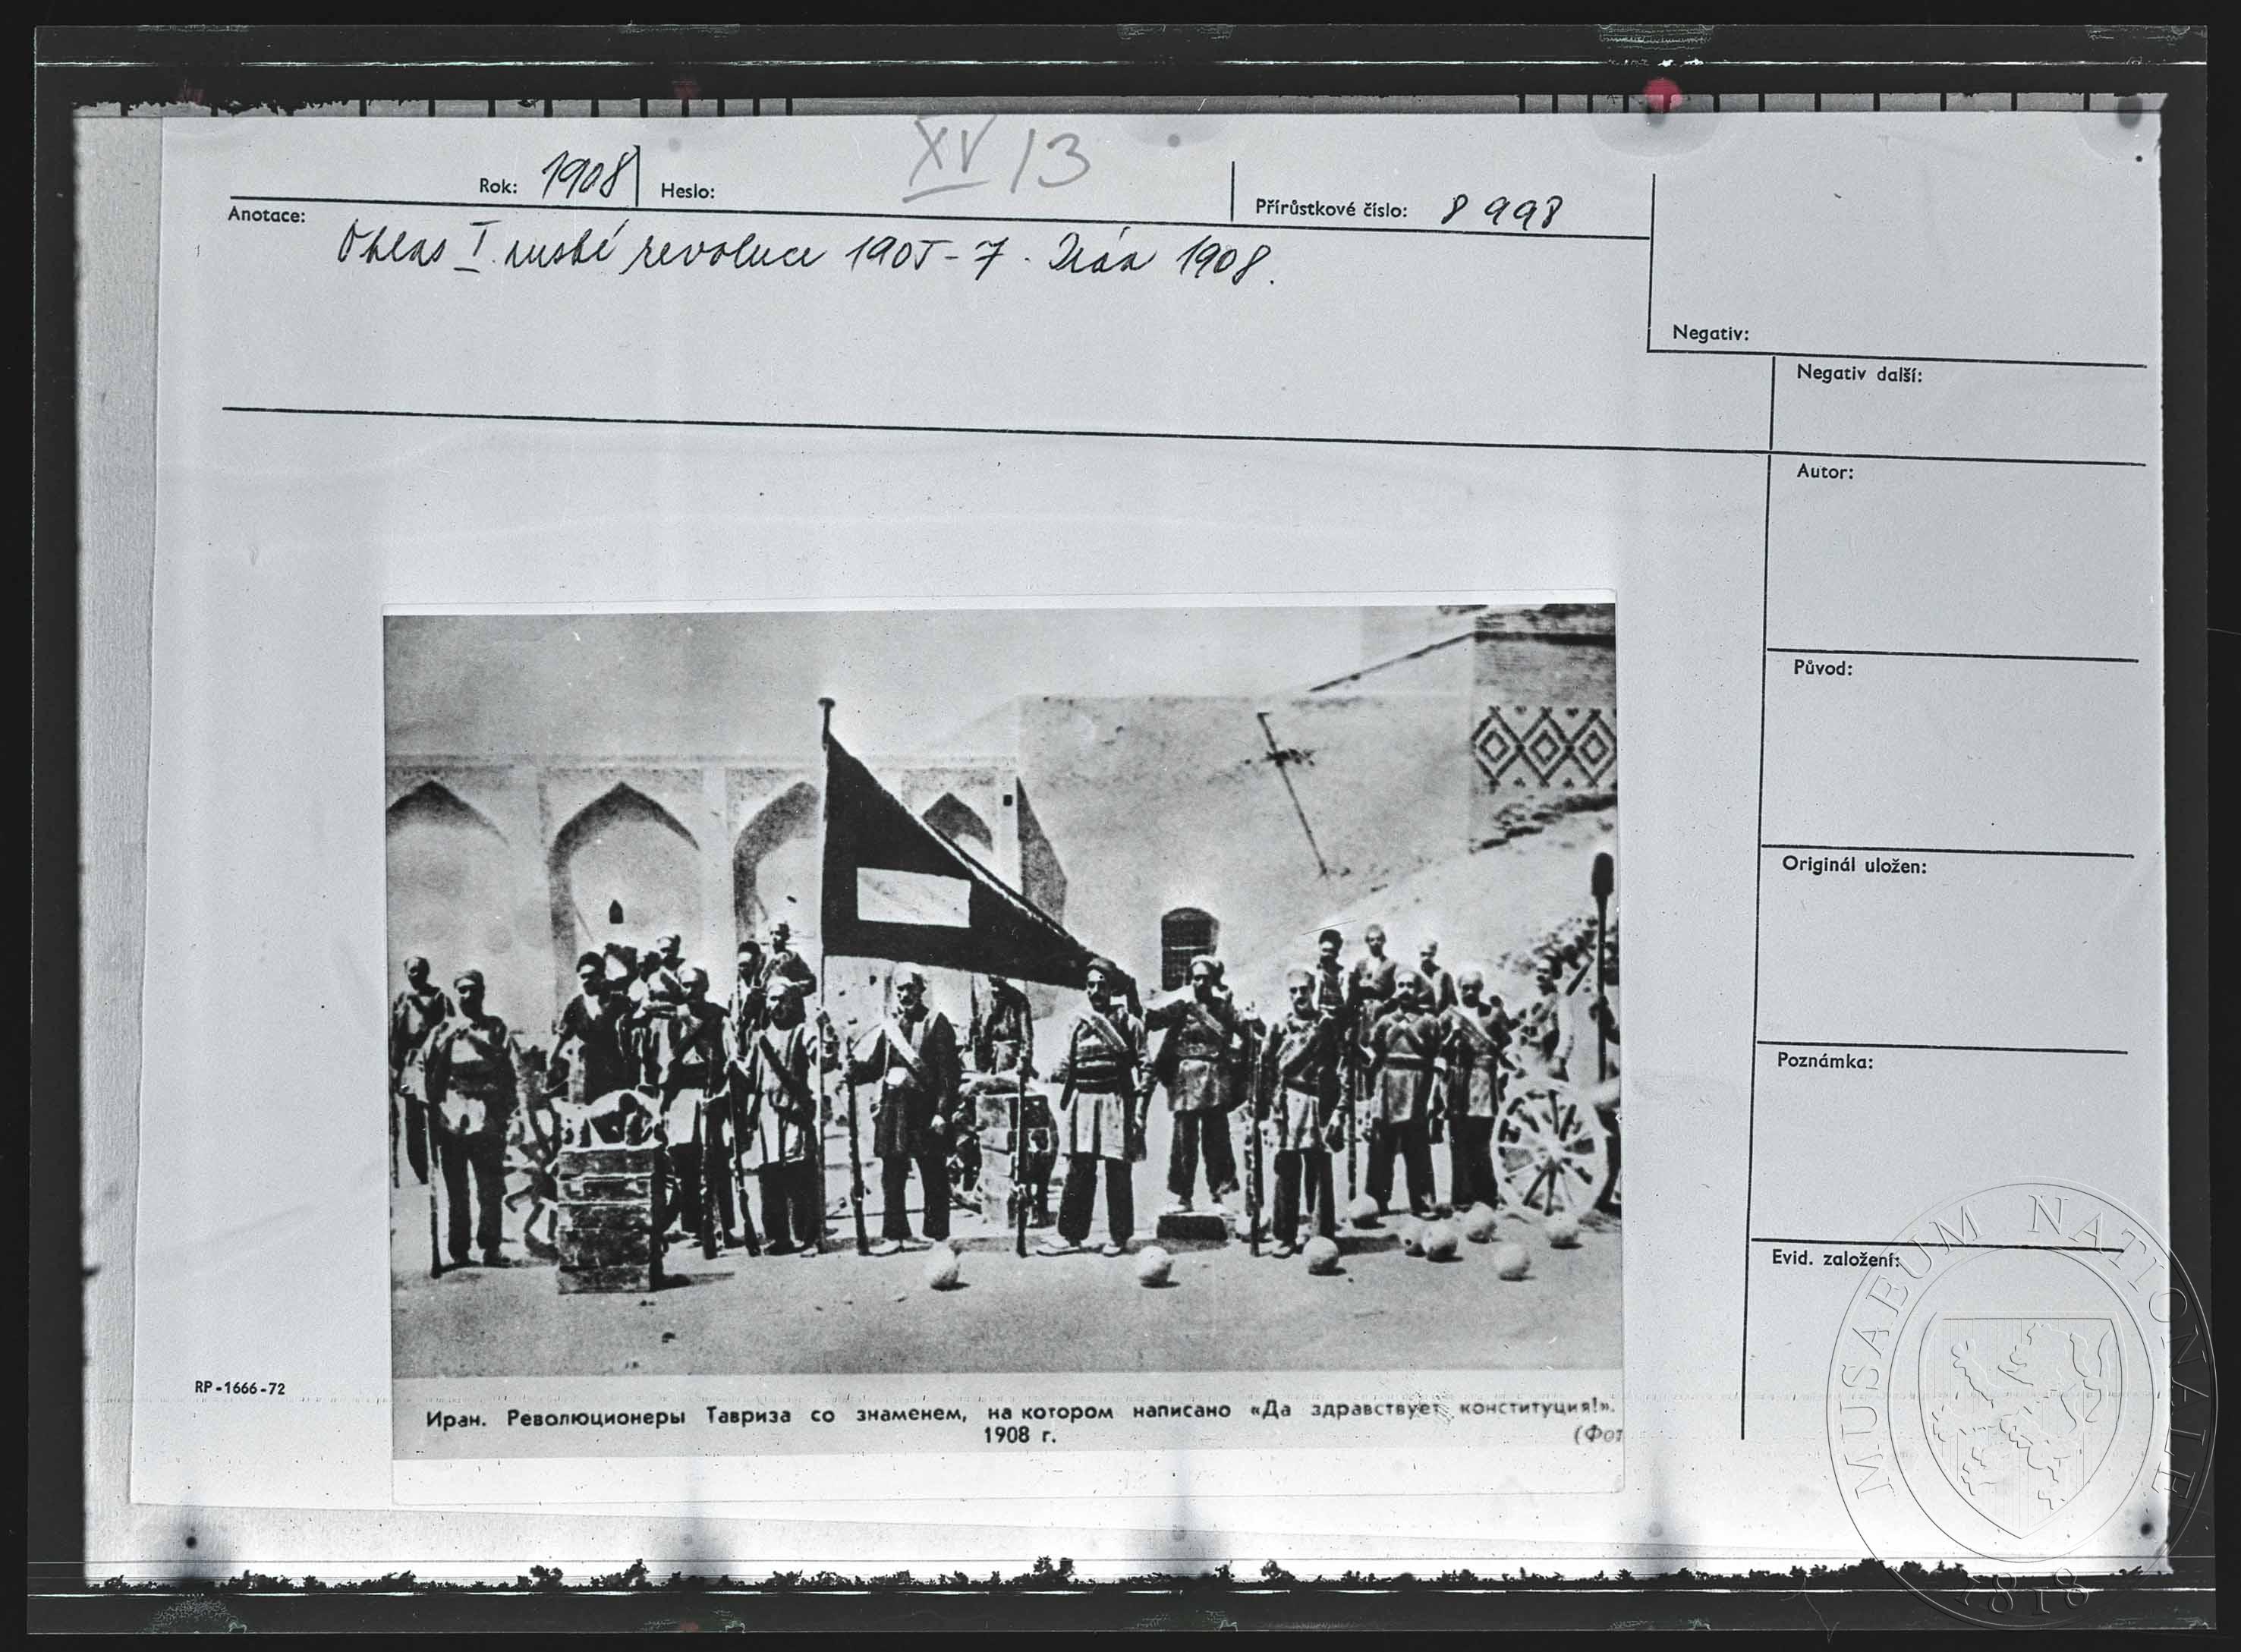 XV/3
Rok: 1908 Heslo: Přírůstkové číslo: 8998
Anotace: Ohlas I. ruské revoluce 1905-7. Irán 1908.
Negativ:
Negativ další:
Autor:
Původ:
Originál uložen:
Poznámka:
Evid. založení:
RP-1666-72
Иран. Революционеры Тавриза со знаменем, на котором написано «Да здравствует конституция!».
1908 г. (Фот
MUSAEUM NATIONALE
1818